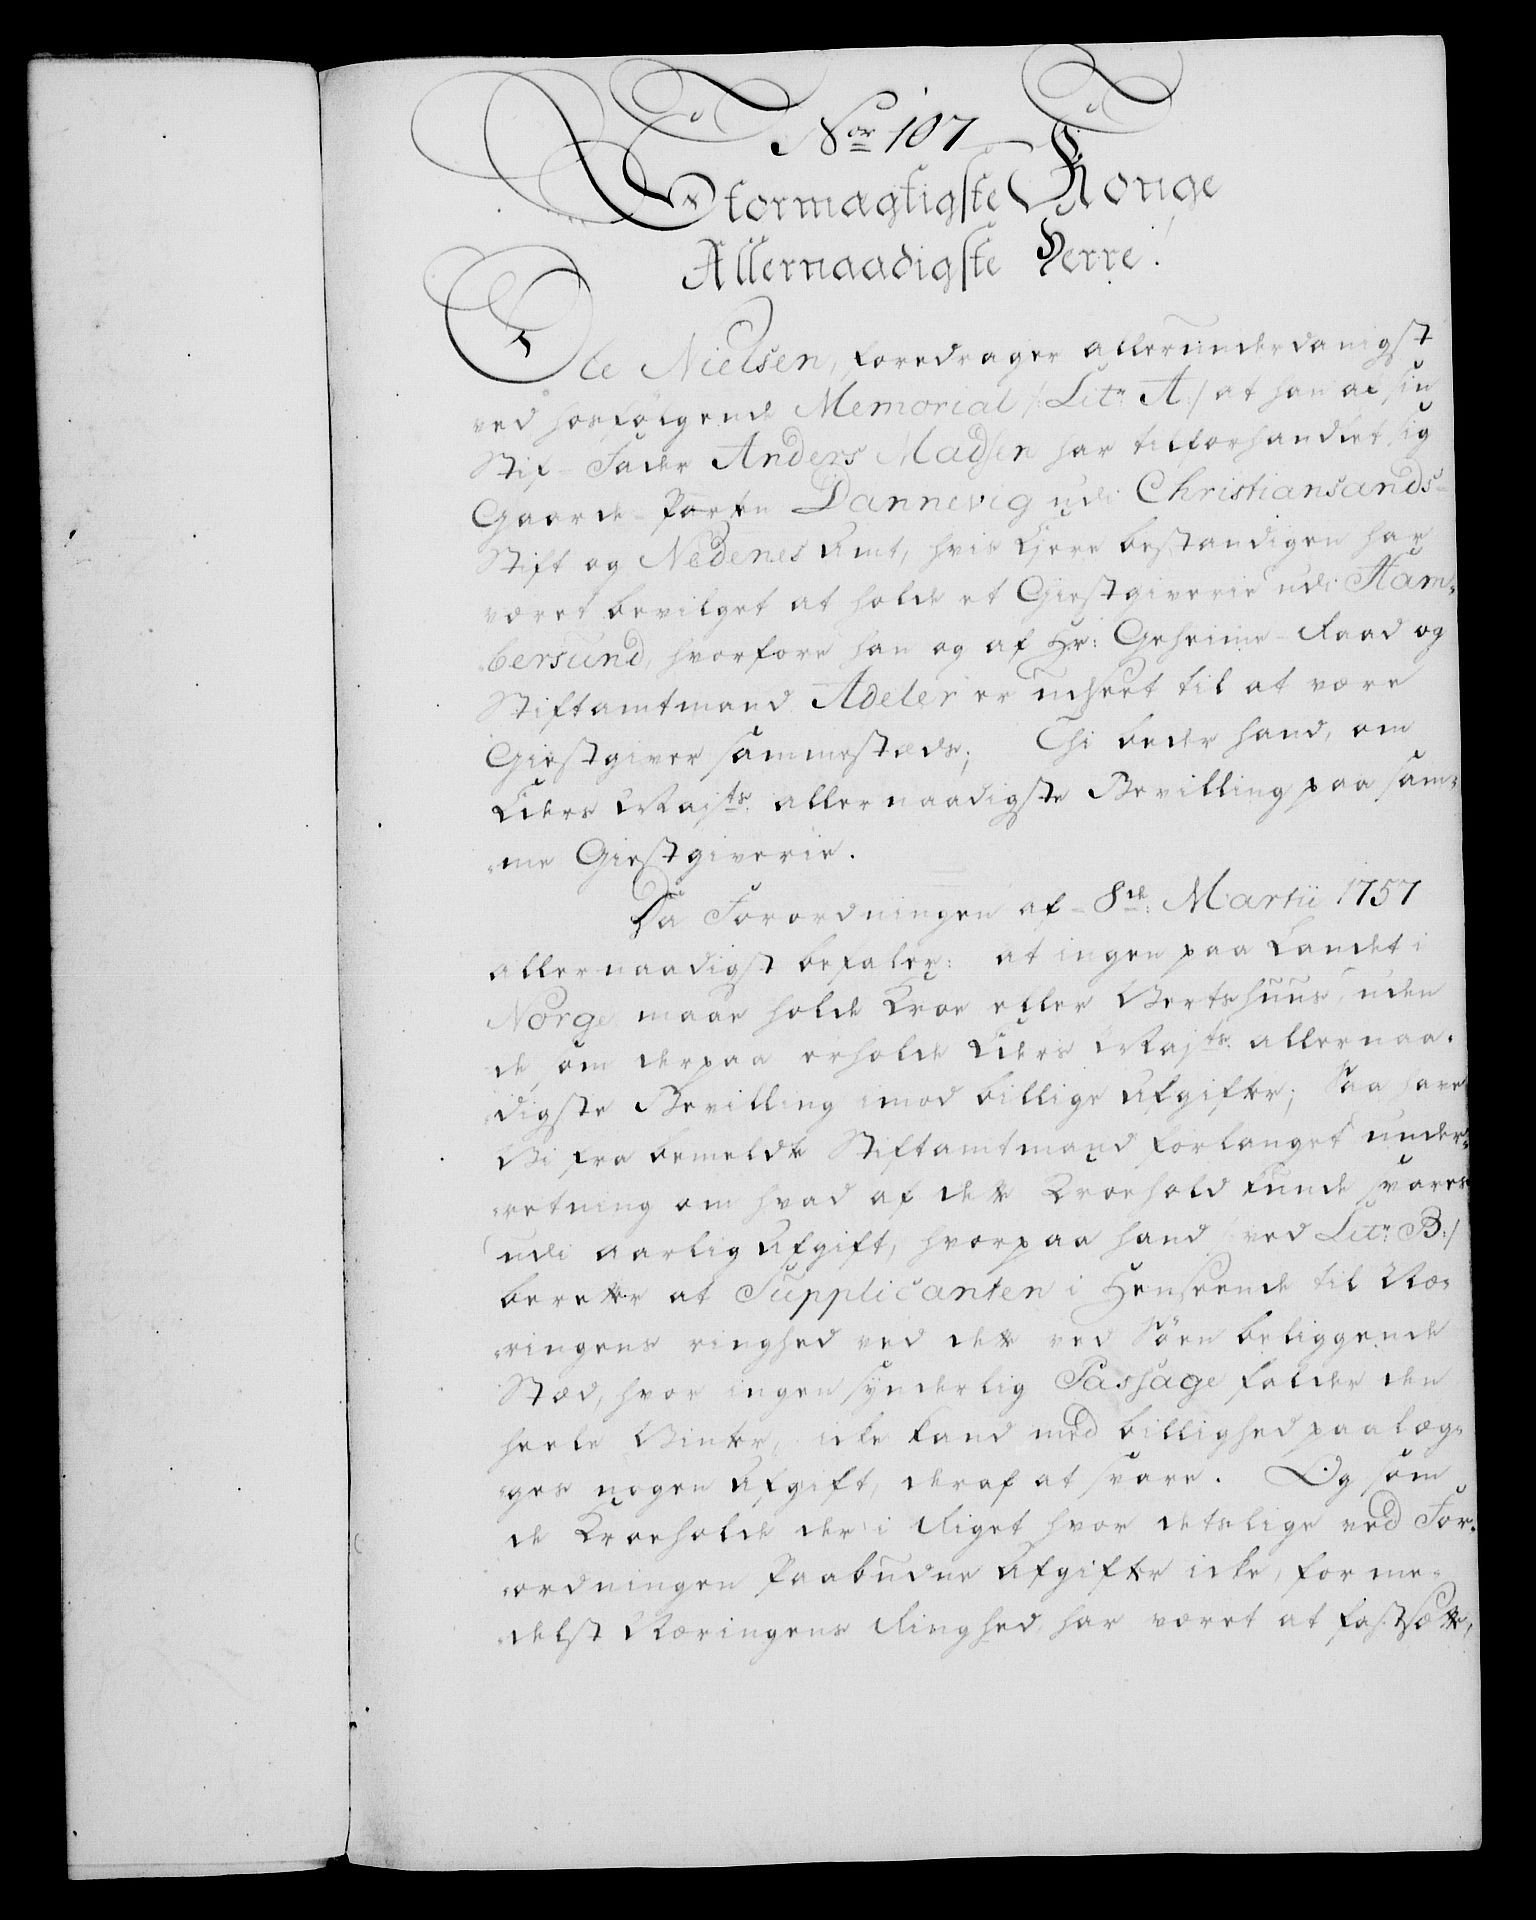 Nor 107
Stormægtigste Konge
Allernaadigste Herre!
Ole Nielsen, foredrager allerunderdanigst
ved hosfølgende Memorial /: Litr A:/ at han af sin
Stif-Fader Anders Madsen har tilforhandlet sig
Gaarde-Parten Dannevig udi Christiansands-
Stift og Nedenes Amt, hvis Ejere bestandigen har
været bevilget at holde et Giestgiverie udi Ham-
bersund, hvorfore han og af Hr: Geheime-Raad og
Stiftamtmand Adeler er udseet til at være
Giestgiver sammesteds; Thi beder hand, om
Eders Maj:ts allernaadigste Bevilling paa sam-
me Giestgiverie.
Da Forordningen af 8de: Martii 1757
allernaadigst befaler: at ingen paa Landet i
Norge maae holde Kroe eller Vertshuus, uden
de som derpaa erholde Eders Maj:ts allernaa-
digste Bevilling imod billige Afgifter; Saa have
Vi fra bemeldte Stiftamtmand forlanget under-
retning om hvad af dette Kroehold kunde svares
udi aarlig Afgift, hvorpaa hand /: ved Litr B:/
beretter at Supplicanten i Henseende til Næ-
ringens ringhed ved dette ved Søen beliggende
Stæd, hvor ingen synderlig Passage falder den
heele Vinter, icke kand med billighed paalæg-
ges nogen Afgift, deraf at svare. Og som
de Kroeholde der i Riget hvor detslige ved For-
ordningen Paabudne Afgifter icke, forme-
delst Næringens Ringhed, har været at fastsætte,